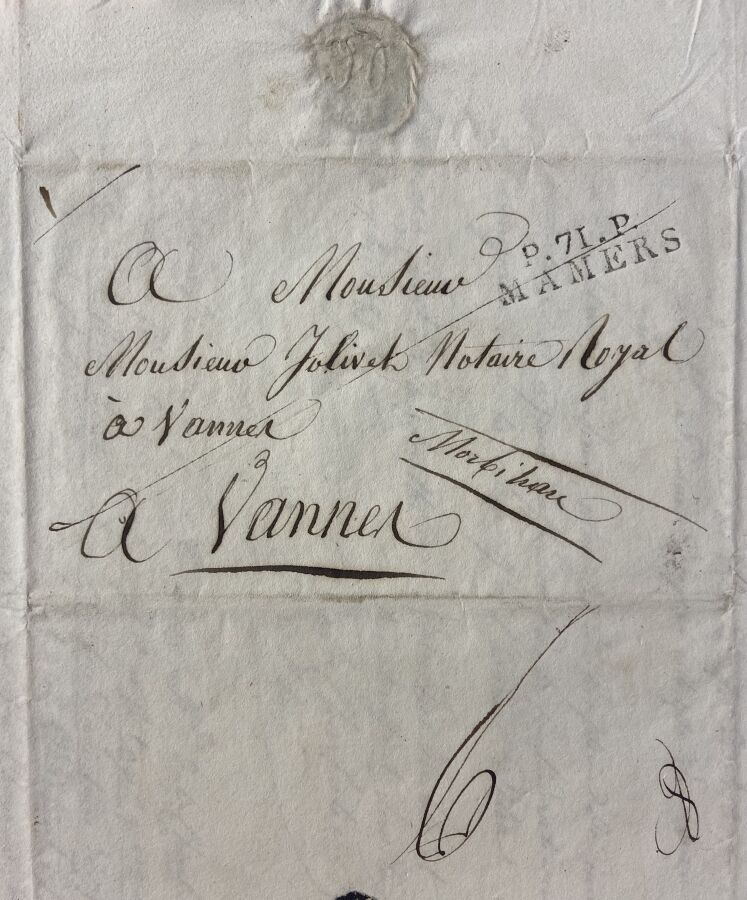 P.71.P.
MAMERS
A Monsieur
Monsieur Jolivet Notaire Royal
à Vannes
Morbihan
A Vannes
6